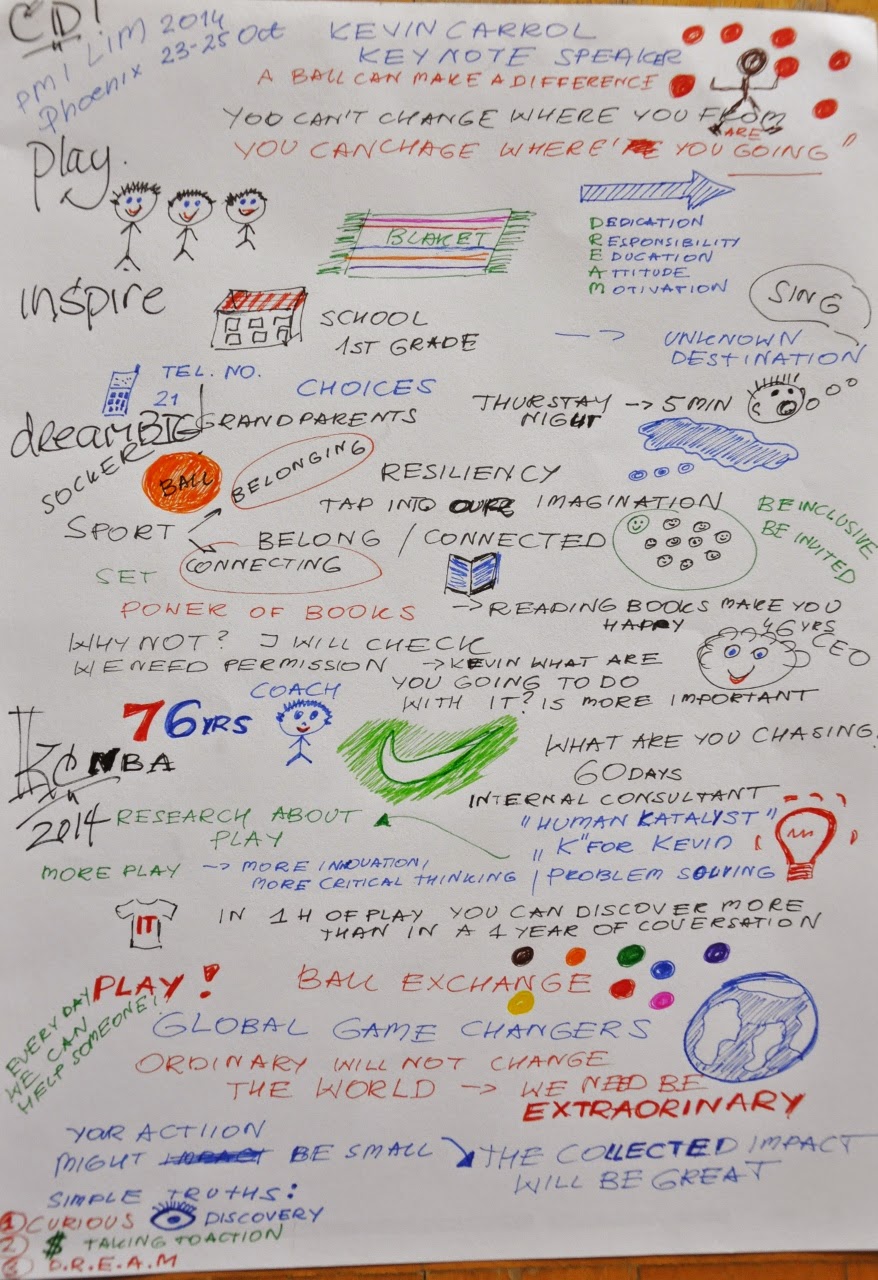 CD!
PMI LIM 2014
Phoenix 23-25 Oct
KEVIN CARROL
KEYNOTE SPEAKER
A BALL CAN MAKE A DIFFERENCE
YOO CAN'T CHANGE WHERE YOU FROM
ARE
YOU CAN CHAGE WHERE YOU GOING"
play.
BLAKET
DEDICATION
RESPONSIBILITY
EDUCATION
ATTITUDE
MOTIVATION
inspire
SCHOOL
1ST GRADE
SING
--> UNKNOWN
DESTINATION
TEL. NO.
21
CHOICES
dream BIG!
GRANDPARENTS
THURSTAY
NIGHT -> 5 MIN
SOCKER
BALL
BELONGING
RESILIENCY
TAP INTO OUR IMAGINATION
SPORT
BELONG / CONNECTED
BE INCLUSIVE
BE INVITED
SET
CONNECTING
POWER OF BOOKS
-> READING BOOKS MAKE YOU
HAPPY
46 YRS
CEO
WHY NOT? I WILL CHECK
WE NEED PERMISSION -> KEVIN WHAT ARE
YOU GOING TO DO
WITH IT? IS MORE IMPORTANT
COACH
76 YRS
NBA
KC
2014
WHAT ARE YOU CHASING?
60 DAYS
INTERNAL CONSULTANT
"HUMAN KATALYST"
"K" FOR KEVIN
RESEARCH ABOUT
PLAY
MORE PLAY -> MORE INNOVATION,
MORE CRITICAL THINKING / PROBLEM SOLVING
IT
IN 1 H OF PLAY YOU CAN DISCOVER MORE
THAN IN A 1 YEAR OF COVERSATION
PLAY!
BALL EXCHANGE
EVERY DAY
WE CAN
HELP SOMEONE!
GLOBAL GAME CHANGERS
ORDINARY WILL NOT CHANGE
THE WORLD -> WE NEED BE
EXTRAORINARY
YOUR ACTIION
MIGHT IMPACT BE SMALL
THE COLLECTED IMPACT
WILL BE GREAT
SIMPLE TRUTHS:
1 CURIOUS DISCOVERY
2 $ TAKING TO ACTION
3 D.R.E.A.M